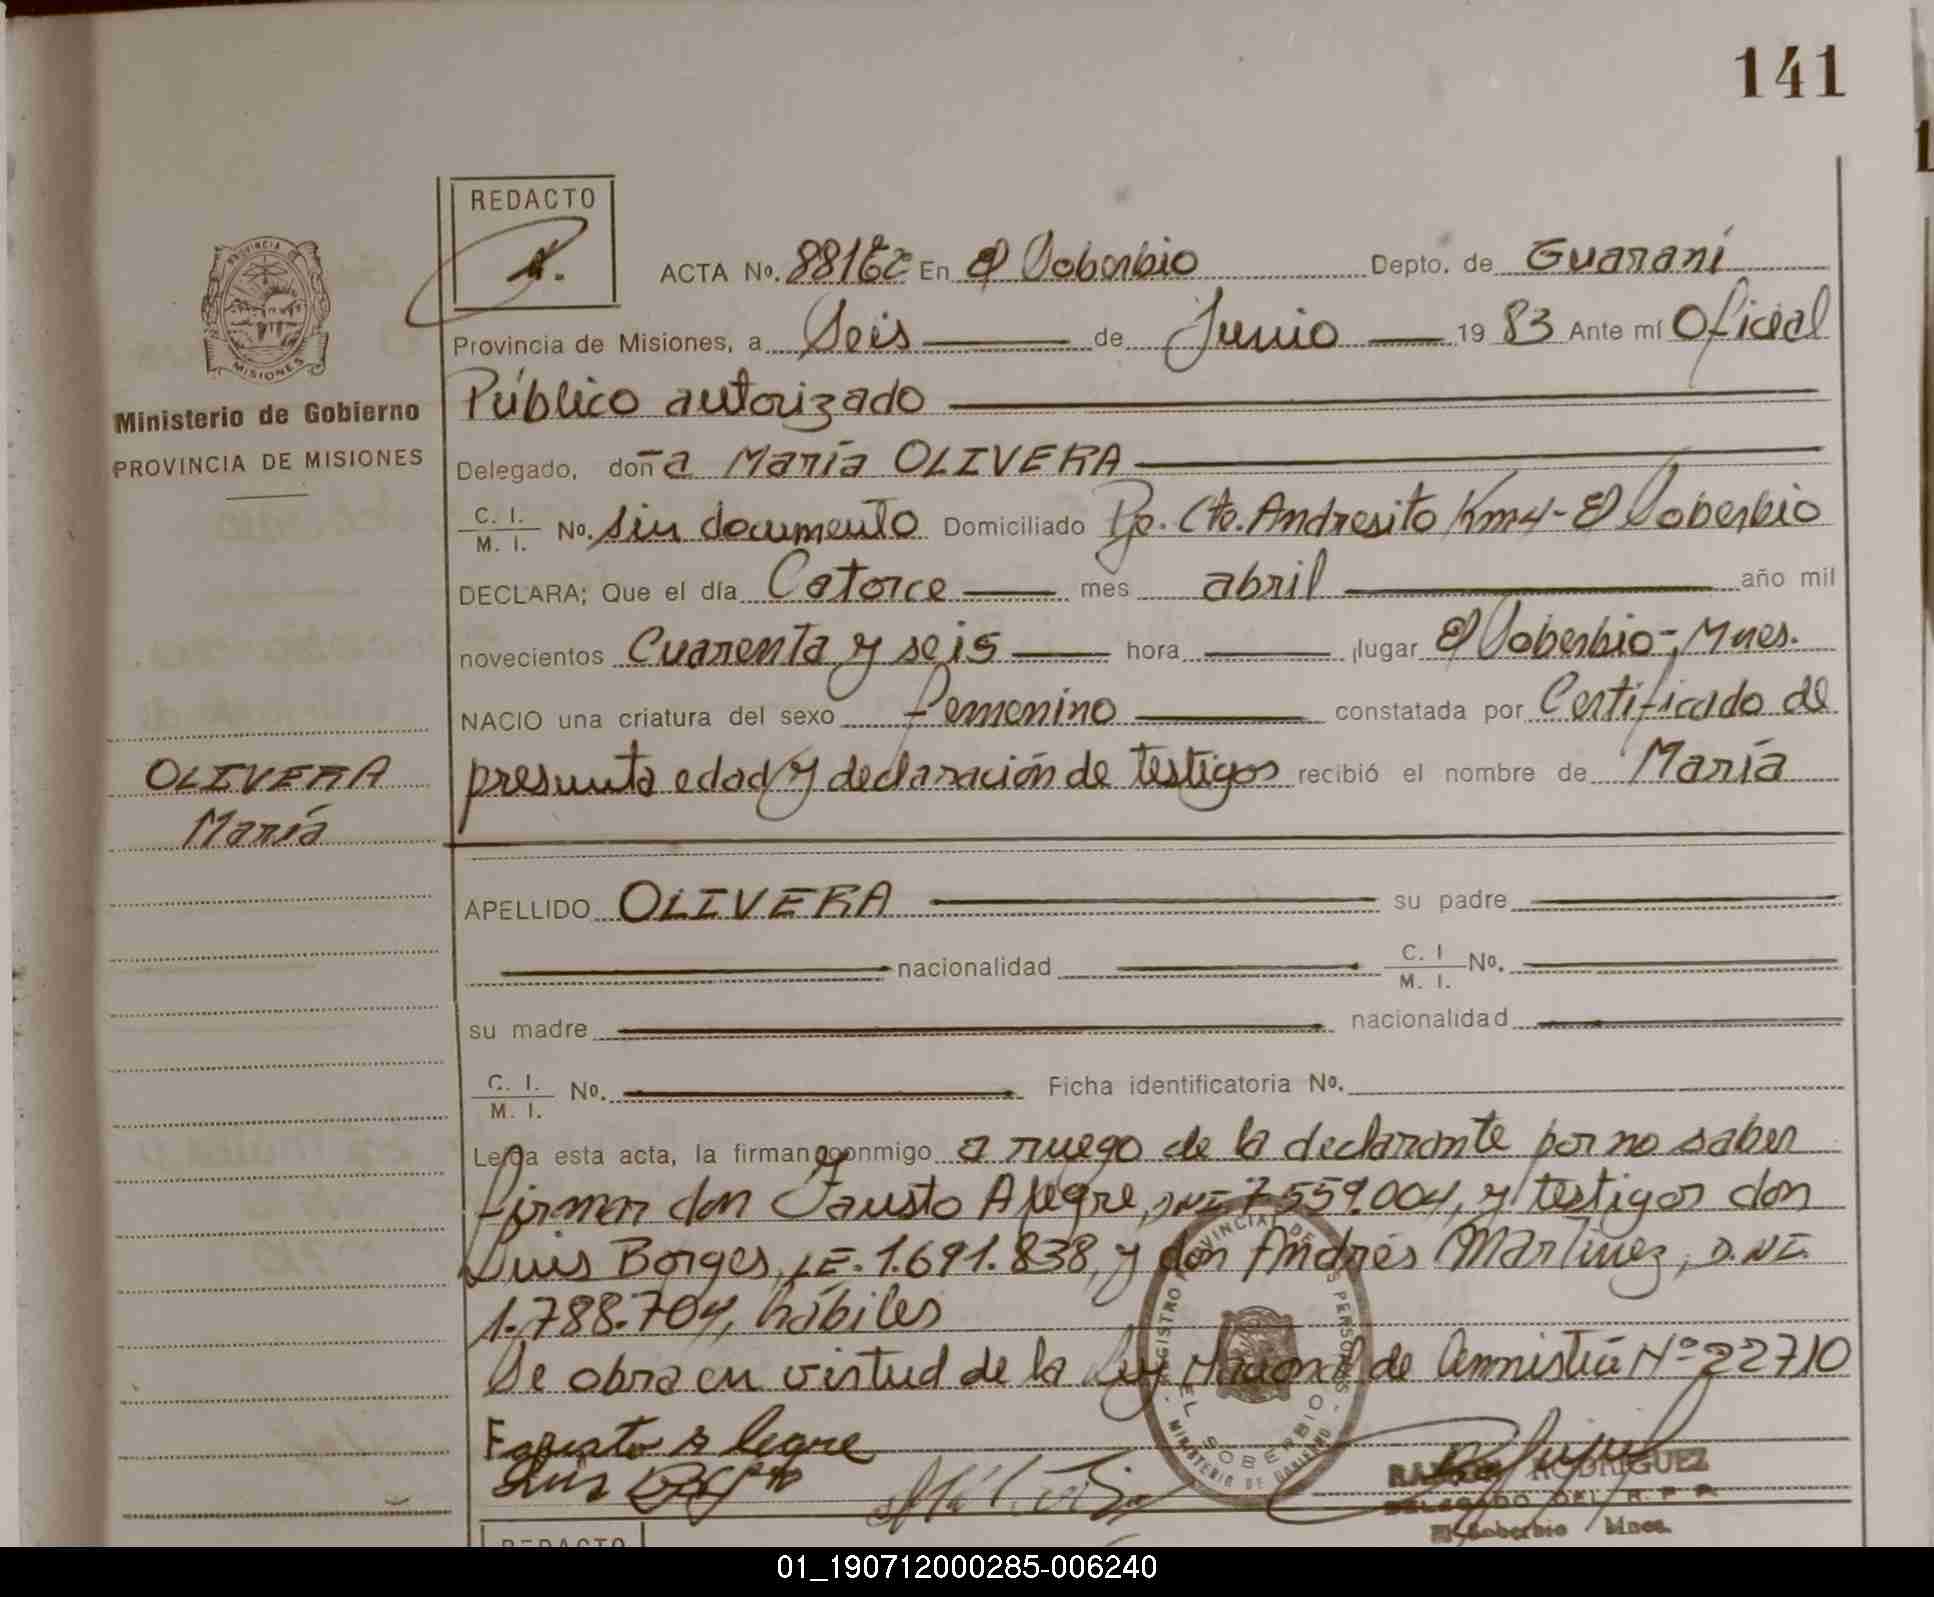 141
REDACTO
PROVINCIA
MISIONES
Ministerio de Gobierno
PROVINCIA DE MISIONES
OLIVERA
María
ACTA No. En El Soberbio Depto. de Guaraní
Provincia de Misiones, a Seis de Junio 19 83 Ante mí Oficial
Público autorizado
Delegado, doña María OLIVERA
C. I.
M. I. No. sin documento Domiciliado Pje. Cte. Andresito Km4-El Soberbio
DECLARA; Que el día Catorce mes abril año mil
novecientos Cuarenta y seis hora lugar El Soberbio-Mnes.
NACIO una criatura del sexo femenino constatada por Certificado de
presunta edad y declaración de testigos recibió el nombre de María
APELLIDO OLIVERA su padre
nacionalidad C. I
M. I. No.
su madre nacionalidad
C. I.
M. I. No. Ficha identificatoria No.
Leída esta acta, la firman conmigo a ruego de la declarante por no saber
firmar don Fausto Alegre, DNI 7.559.004, y testigos don
Luis Borges, LE. 1.691.838, y don Andrés Martinez, D.NI.
1.788.704, hábiles
Se obra en virtud de la Ley Nacional de Amnistía Nº 22710
Fausto Alegre
Luis
EL SOBERBIO
MINISTERIO DE GOBIERNO
RODRIGUEZ
DELEGADO DEL R. P. P.
El Soberbio Mnes.
REDACTO
01_190712000285-006240